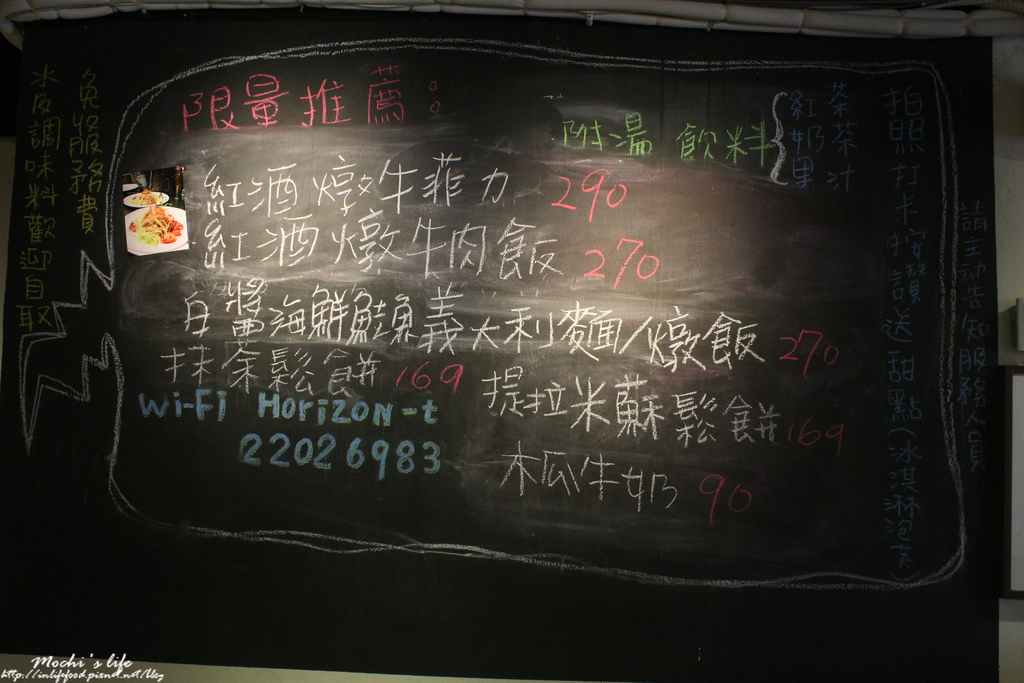 限量推薦:
附湯 飲料
紅茶
奶茶
果汁
紅酒燉牛菲力 290
紅酒燉牛肉飯 270
白醬海鮮鮭魚義大利麵/燉飯 270
抹茶鬆餅 169
提拉米蘇鬆餅 169
木瓜牛奶 90
Wi-Fi Horizon-t
22026983
免收服務費
水度調味料歡迎自取
拍照打卡按讚送甜點(冰淇淋泡芙)
請主动告知服務人員
Mochi's life
http://inlifefood.pixnet.net/blog